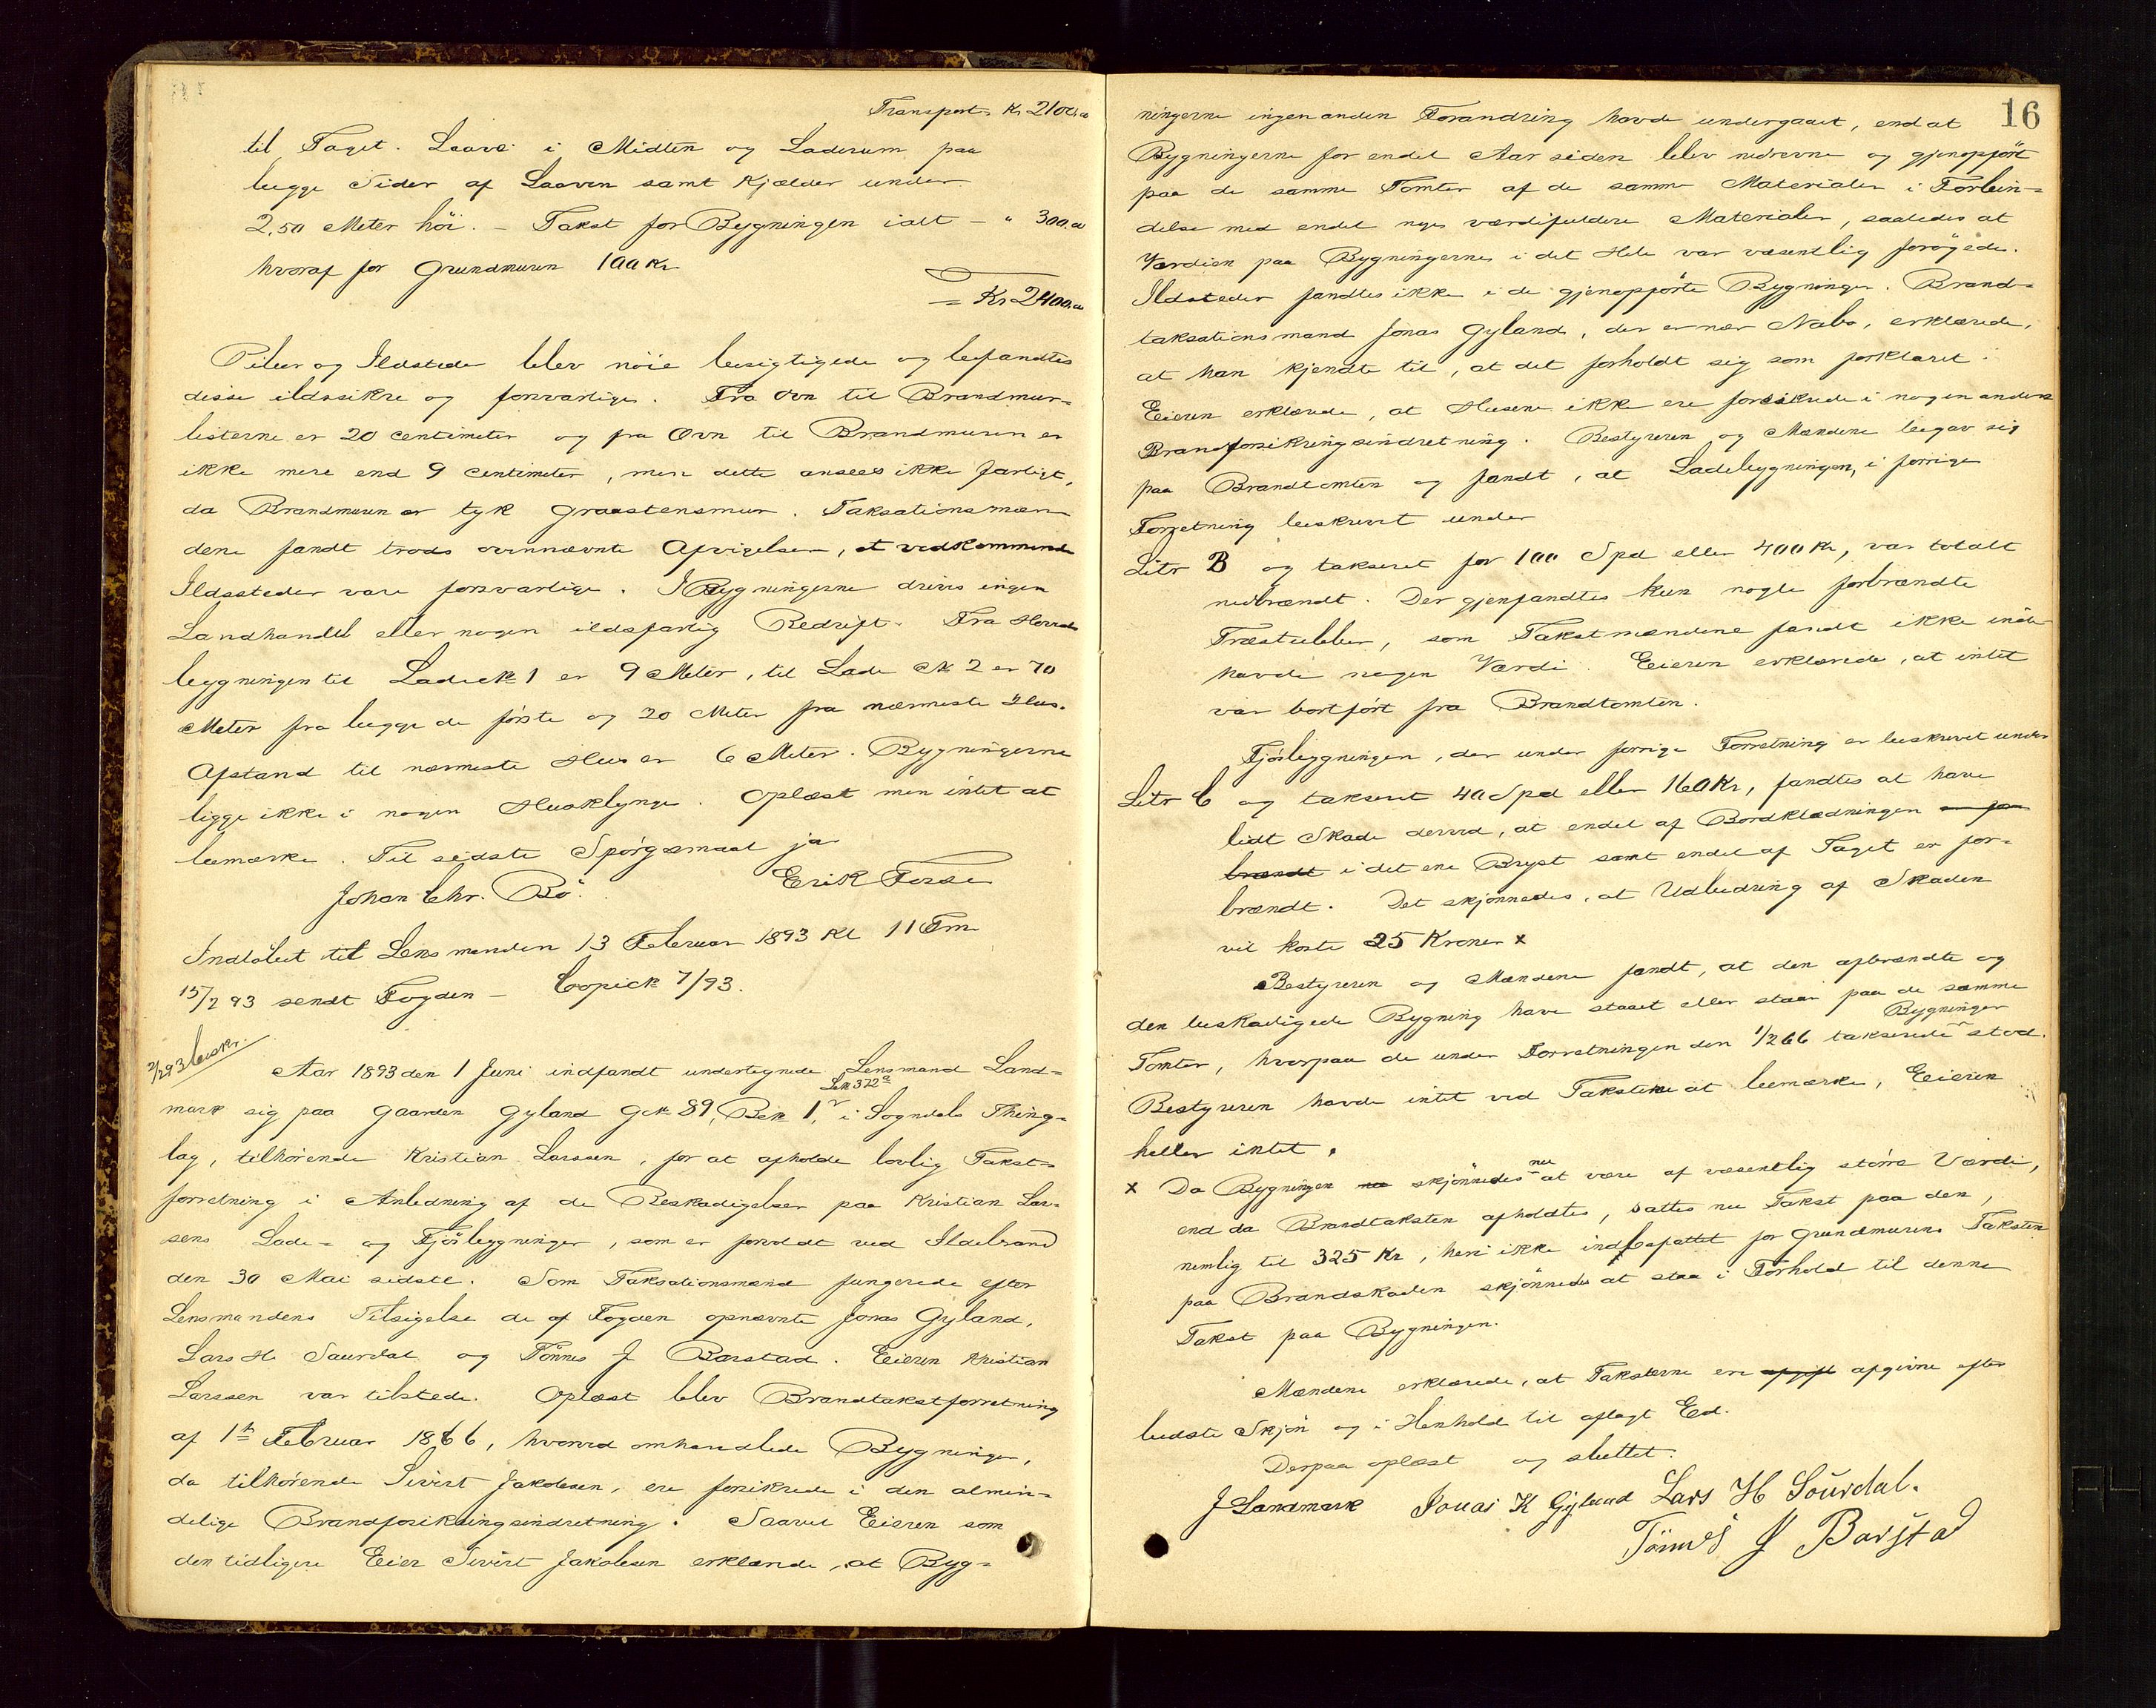 Transport Kr 2100,00
til Taget. Laave i Midten og Laderum paa
begge Sider af Laaven samt Kjælder under
2,50 Meter höi. – Takst for Bygningen ialt – " 300,00
hvoraf for Grundmuren 100 Kr
= Kr 2400,00
Piber og Ildsteder blev nöie besigtigede og befandtes
disse ildssikre og forsvarlige. Fra Ovn til Brandmur-
listerne er 20 Centimeter og fra Ovn til Brandmuren er
ikke mere end 9 Centimeter, men dette ansees ikke farligt,
da Brandmuren er tyk Graastensmur. Taksationsmæn-
dene fandt trods ovennævnte Afvigelser, at vedkommende
Ildssteder vare forsvarlige. I Bygningerne drives ingen
Landhandel eller nogen ildsfarlig Bedrift. Fra Hoved
bygningen til Lade № 1 er 9 Meter, til Lade № 2 er 70
Meter fra begge de förste og 20 Meter fra nærmeste Hus.
Afstand til nærmeste Hus er 6 Meter. Bygningerne
ligge ikke i nogen Husklynge. Oplæst men intet at
bemærke. Til sidste Spörgsmaal ja
Johan Chr. Bö. Erik Forse
Indlöbet til Lensmanden 13 Februar 1893 Kl 11 Fm
15/2 93 sendt Fogden – Copiek 7/93.
2/293 beskr.
Aar 1893 den 1 Juni indfandt undertegnede Lensmand Land-
Lnr 322a
mark sig paa Gaarden Gyland G№ 89, B№ 1, i Sogndals Thing-
lag, tilhörende Kristian Larssen, for at afholde lovlig Takst-
forretning i Anledning af de Beskadigelser paa Kristian Lar-
sens Lade- og Fjösbygninger, som er forvoldt ved Ildebrand
den 30 Mai sidstl. Som Taksationsmænd fungerede efter
Lensmandens Tilsigelse de af Fogden opnævnte Jonas Gyland,
Lars H Saurdal og Tönnes J Barstad. Eieren Kristian
Larssen var tilstede. Oplæst blev Brandtakstforretning
af 1ste Februar 1866, hvorved omhandlede Bygninger,
da tilhörende Sivert Jakobsen, ere forsikrede i den almin-
delige Brandforsikringsindretning. Saavel Eieren som
den tidligere Eier Sivert Jakobsen erklærede, at Byg-
16
ningerne ingen anden Forandring havde undergaaet, end at
Bygningerne for endel Aar siden blev nedrevne og gjenopfört
paa de samme Tomter af de samme Materialer i Forbin-
delse med endel nye værdifuldere Materialer, saaledes at
Værdien paa Bygningerne i det Hele var væsentlig forögede.
Ildsteder fandtes ikke i de gjenopförte Bygninger. Brand-
taksationsmand Jonas Gyland, der er nær Nabo, erklærede,
at han kjendte til, at det forholdt sig som forklaret.
Eieren erklærede, at Husene ikke ere forsikrede i nogen anden
Brandforsikringsindretning. Bestyreren og Mændene begav sig
paa Brandtomten og fandt, at Ladebygningen, i forrige
Forretning beskrevet under
Litr B og takseret for 100 Spd eller 400 Kr, var totalt
nedbrændt. Der gjenfandtes kun nogle forbrændte
Træstubber, som Takstmændene fandt ikke inde-
havde nogen Værdi. Eieren erklærede, at intet
var bortfört fra Brandtomten.
Fjösbyggningen, der under forrige Forretning er beskrevet under
Litr C og takseret 40 Spd eller 160 Kr, fandtes at have
lidt Skade derved, at endel af Bordklædningen er for
brændt i det ene Bryst samt endel af Taget er for-
brændt. Det skjönnedes, at Udbedring af Skaden
vil koste 25 Kroner x
Bestyreren og Mændene fandt, at den afbrændte og
den beskadigede Bygning have staaet eller staar paa de samme
Bygninger
Tomter, hvorpaa de under Forretningen den 1/2 66 takserede stod.
Bestyreren havde intet ved Taksterne at bemærke, Eieren
heller intet.
nu
x Da Bygningen skjönnedes at være af væsentlig större Værdi,
end da Brandtaksten afholdtes, sattes nu Takst paa den,
nemlig til 325 Kr, heri ikke indbefattet for Grundmuren. Taksten
paa Brandskaden skjönnedes at staa i Forhold til denne
Takst paa Bygningen.
Mændene erklærede, at Taksterne ere afgift afgivne efter
bedste Skjön og i Henhold til aflagt Ed.
Derpaa oplæst og sluttet.
J Landmark Jonas K Gyland Lars H Sourdal.
Tönnes J Barstad